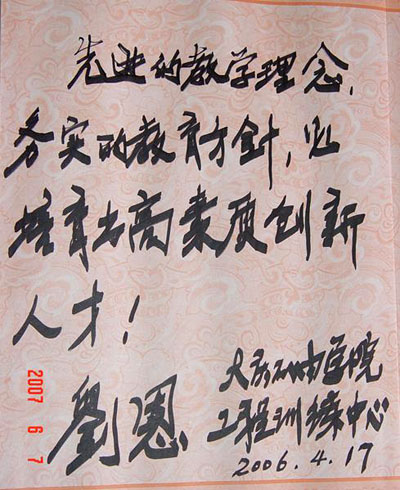 先进的教学理念,
务实的教育方針,必
培育出高素质创新
人才!
劉恩
大庆石油学院
工程训练中心
2006.4.17
2007 6 7